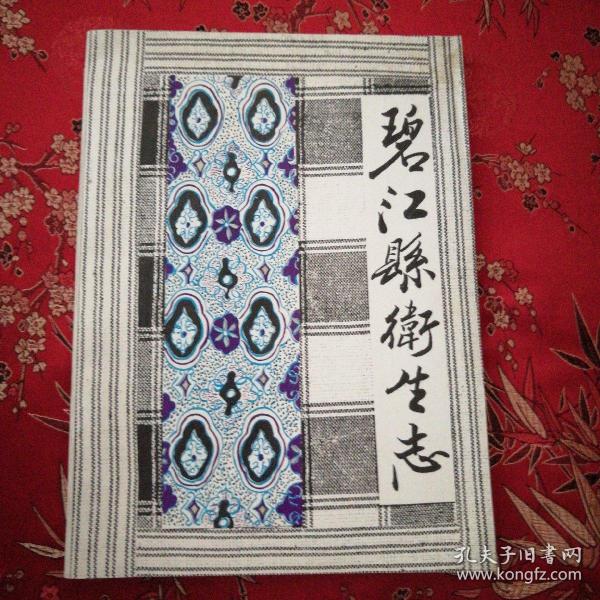 碧江縣衛生志
孔夫子旧書网
www.kongfz.com